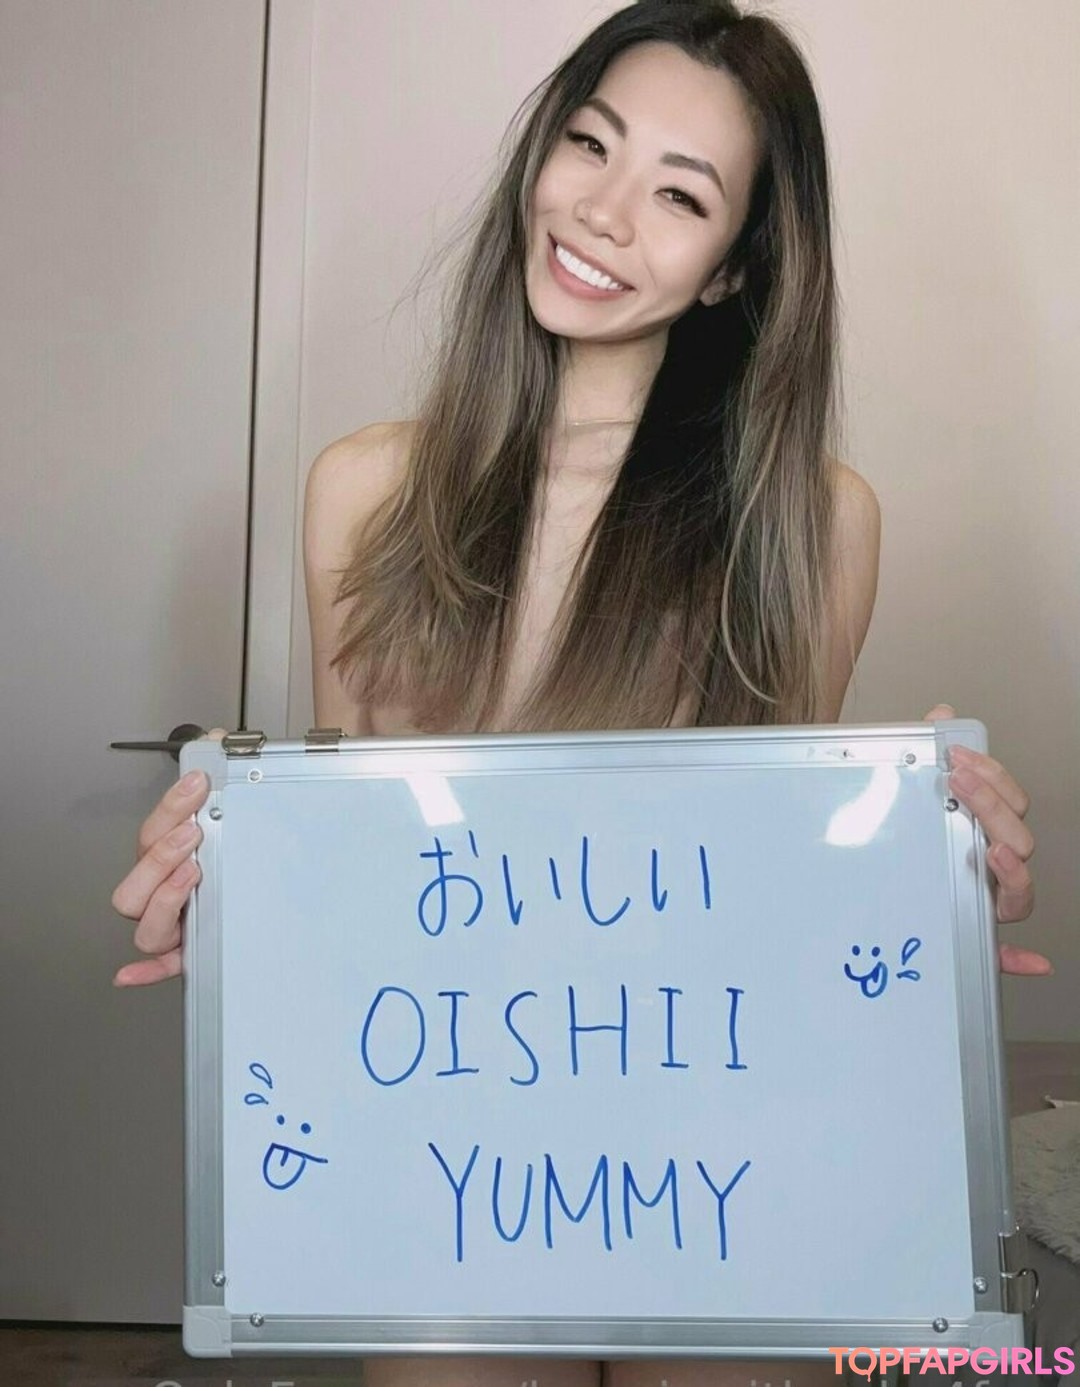 おいしい
OISHII
YUMMY
TOPFAPGIRLS